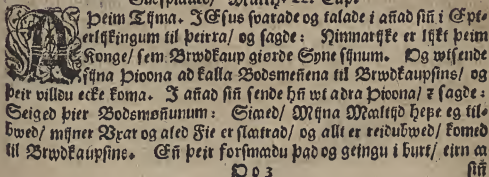 A Þeim Tijma. JEsus suarade og talade i añad siñ i Epter
erlijkingum til þeirra/ og sagde: Himnarijke er lijkt þeim
Konge/ sem Brwdkaup giørde Syne sijnum. Og wtsende
sijna Þioona ad kalla Bodsmeñena til Brwdkaupsins/ og
þeir villdu ecke koma. J añad siñ sende hñ wt adra Þioona/ ꝛ sagde:
Seiged þier Bodsmøñunum: Siaed/ Mijna Maaltijd hefe eg til-
bwed/ mijner Yxar og aled Fie er slaatrad/ og allt er reidubwed/ komed
til Brwdkaupsins. Eñ þeir forsmaadu þad og geingu i burt/ eirn aa
Oo 3 siñ